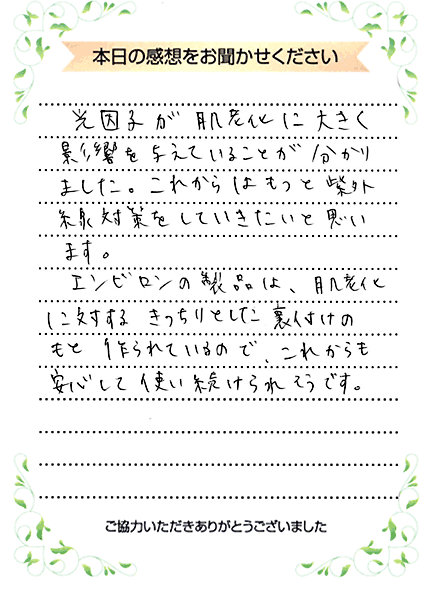 本日の感想をお聞かせください
光因子が肌老化に大きく
影響を与えていることが分かり
ました。これからはもっと紫外
線対策をしていきたいと思い
ます。
エンビロンの製品は、肌老化
に対する きっちりとした裏付けの
もと 作られているので、これからも
安心して使い続けられそうです。
ご協力いただきありがとうございました